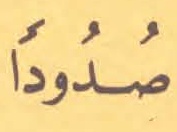 صُدُودأَ